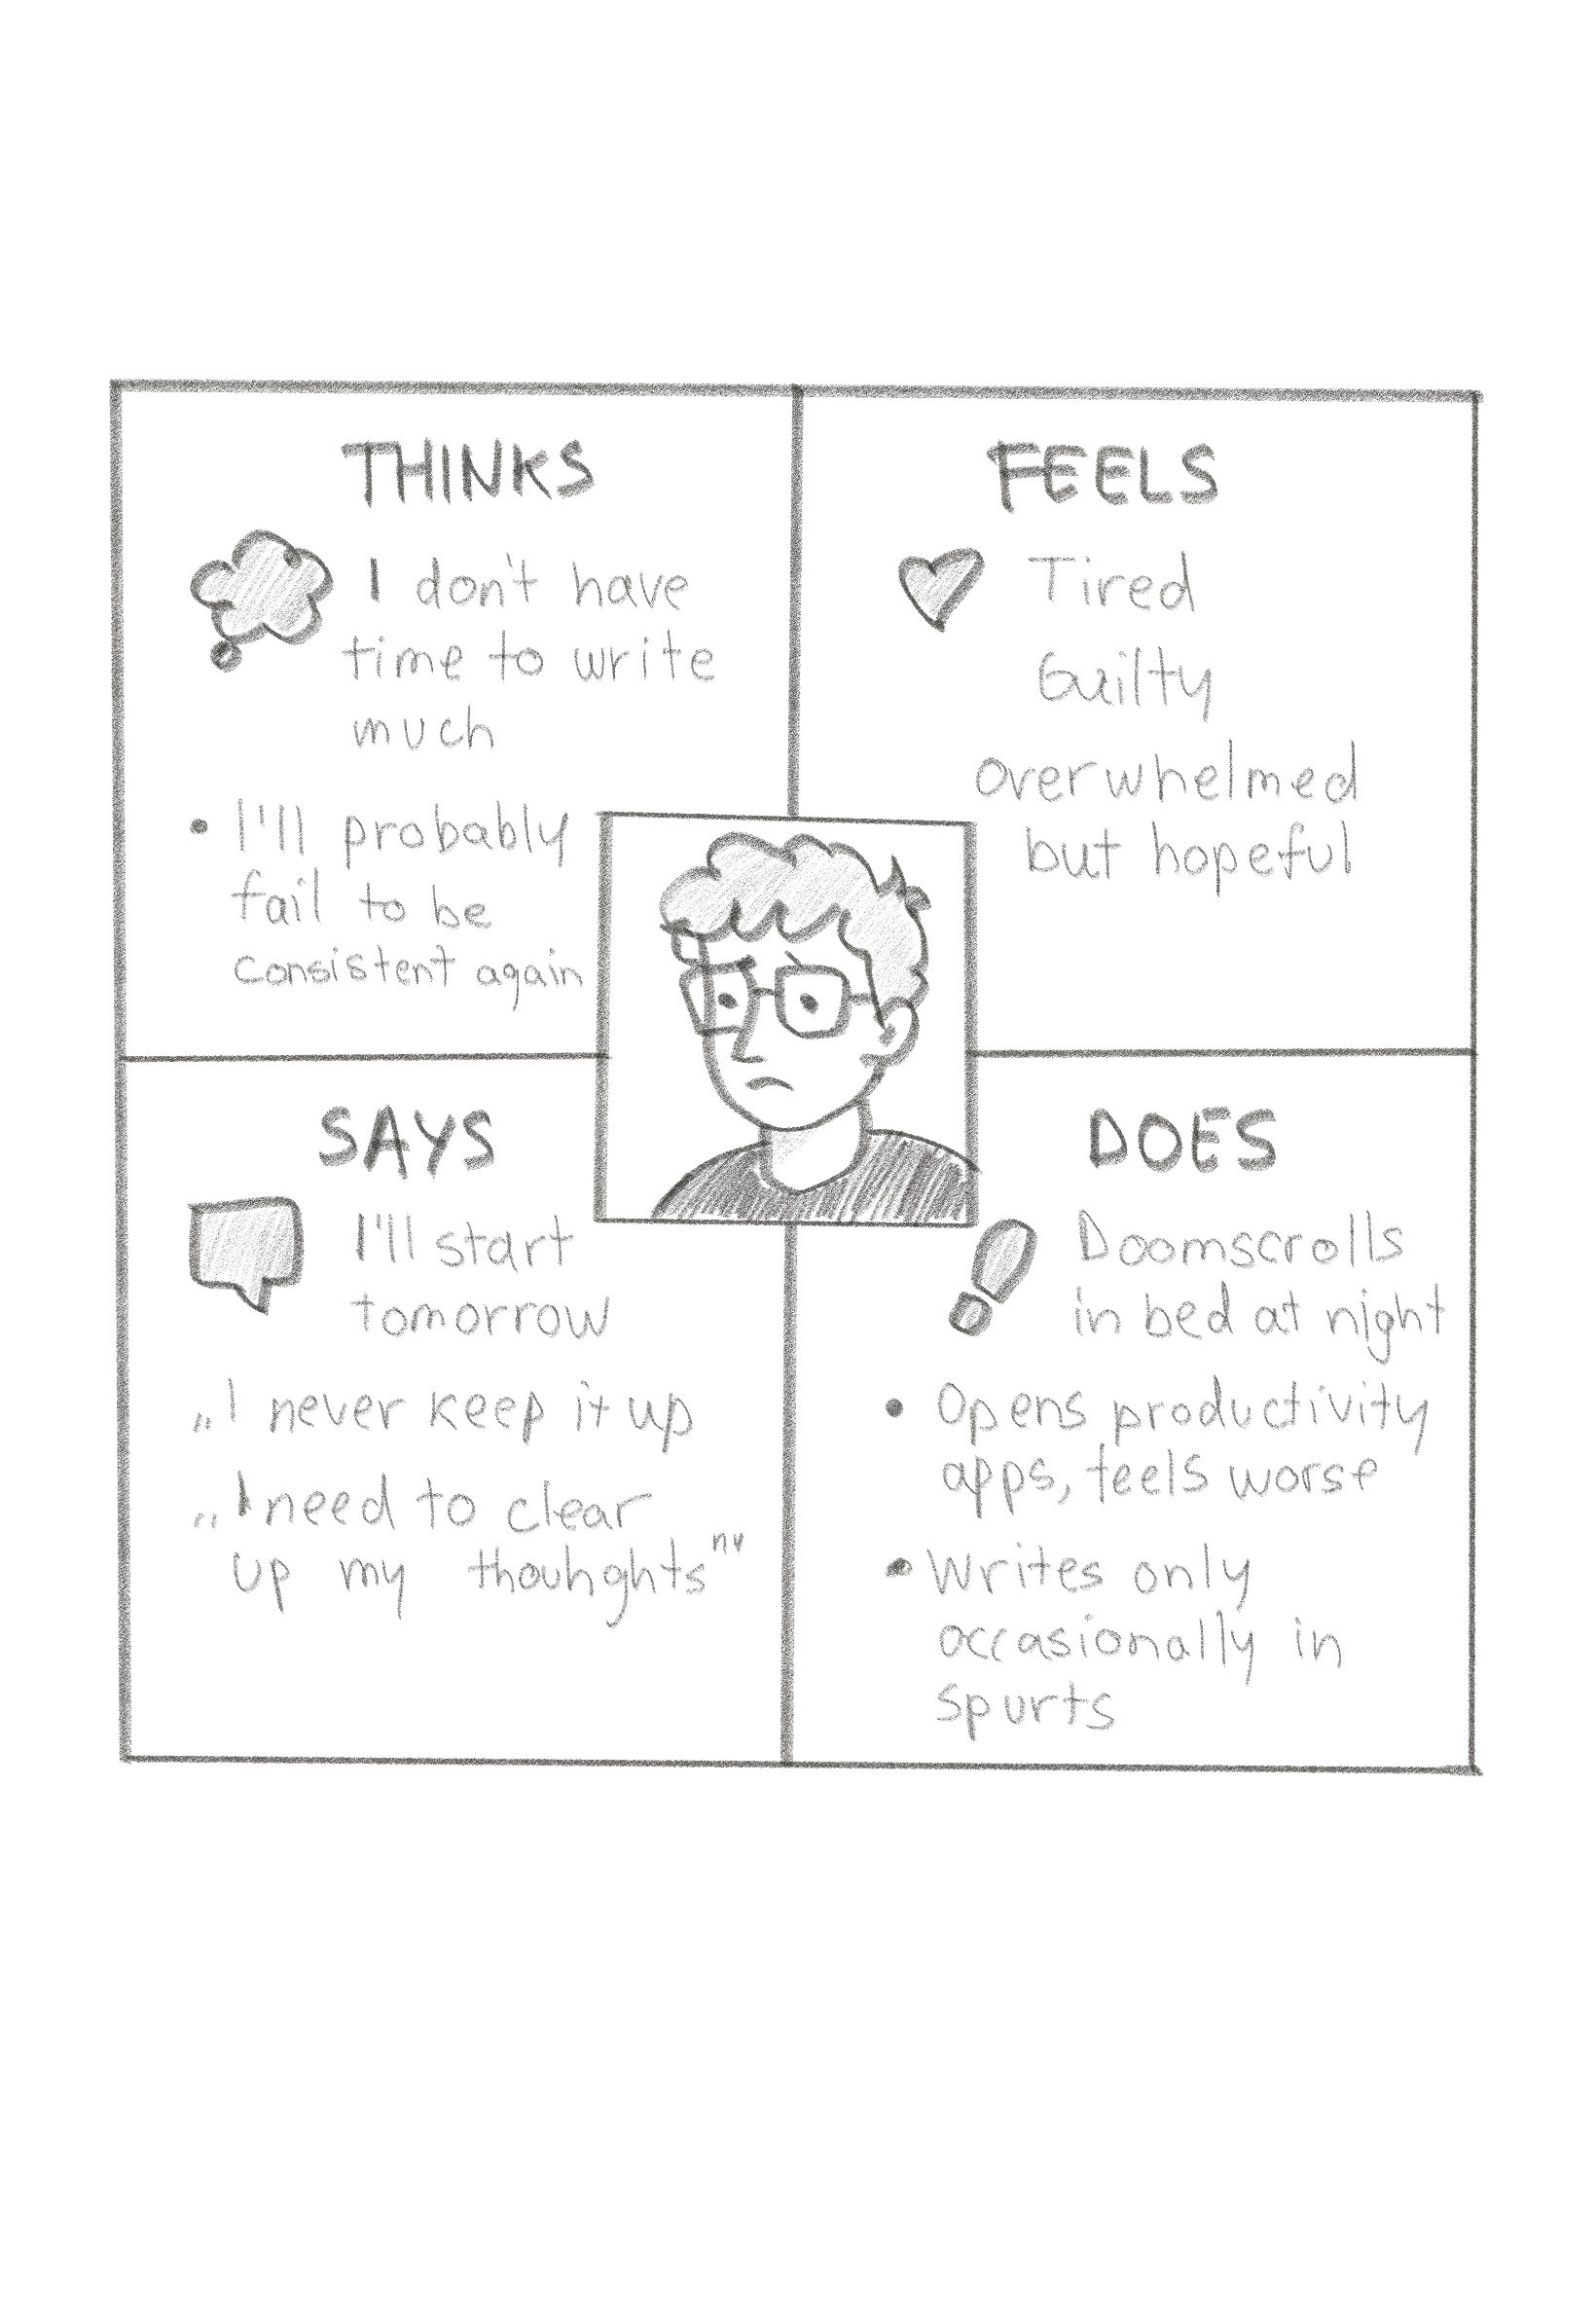 THINKS
I don't have
time to write
much
• I'll probably
fail to be
consistent again
FEELS
Tired
Guilty
overwhelmed
but hopeful
SAYS
I'll start
tomorrow
„I never keep it up
„I need to clear
up my thouhghts"
DOES
Doomscrolls
in bed at night
• Opens productivity
apps, feels worse
• Writes only
occasionally in
spurts